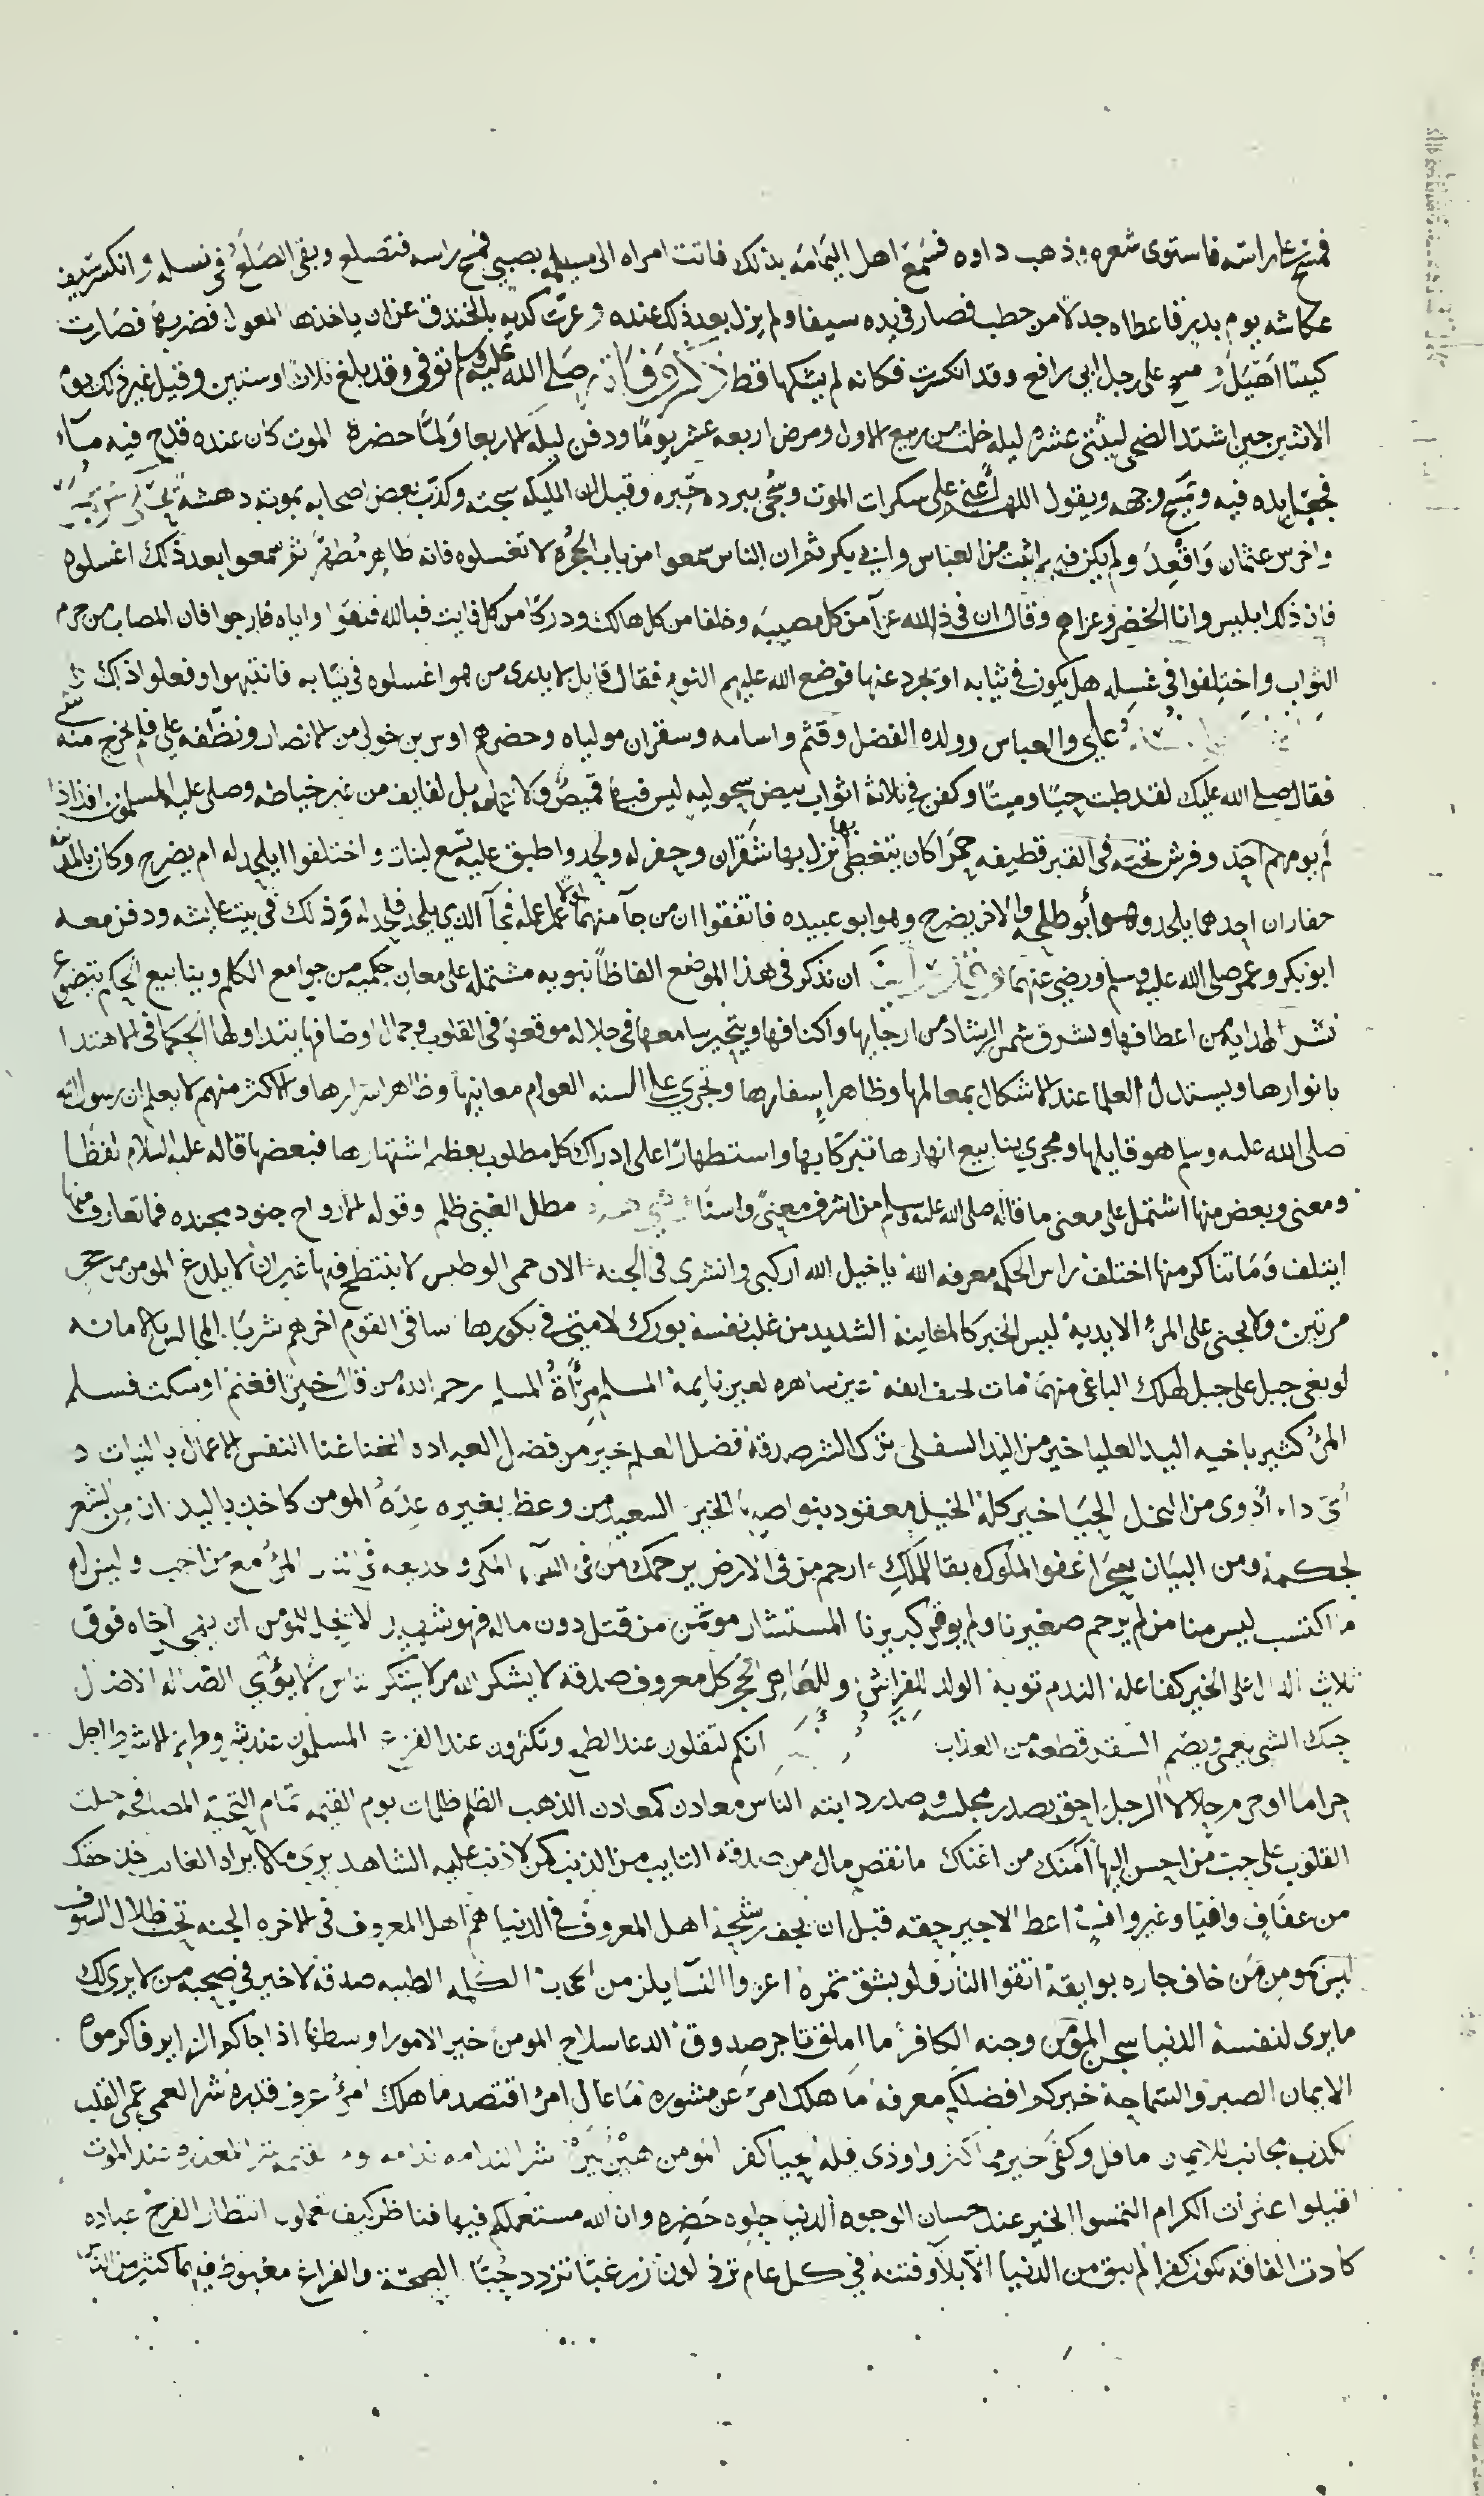 فمسح على راسه فاستوى شعره وذهب داوه فسمع اهل اليمامه بذلك فاتت امراه الى مسيلمه بصبي فمسح راسه فتصلع وبقى الصلع فى نسله وانكسر سيف
عكاشه يوم بدر فاعطاه جدلا من حطب فصار في يده سيفا ولم يزل بعد ذلك عنده وعزت كديه بالخندق عن ان ياخذها المعول فضربها فصارت
كثيبا اهيل ومسح على رجل ابي رافع وقد انكسرت فكانه لم يشكها قط ذكر وفاته صلى الله عليه وسلم توفى وقد بلغ ثلاثا وستين وقيل غير ذلك يوم
الاثنين حين اشتد الضحى لثنتى عشره ليله خلت من ربيع الاول ومرض اربعه عشر يوما ودفن ليله الاربعا ولما حضره الموت كان عنده قدح فيه مآء
فجعل يده فيه ويمسح وجهه ويقول اللهم اعنى على سكرات الموت وسجى ببرده حبره وقيل ان المليكه سجته وكذب بعض اصحابه بموته دهشه
واخرس عثمان واقعد ولم يكن فيهم اثبت من العباس وابي بكر ثم ان الناس سمعوا من باب الحجرة لا تغسلوه فانه طاهر مطهر ثم سمعوا بعد ذلك اغسلوه
فان ذلك ابليس وانا الخضر وعزاهم وقال ان فى الله عزآ من كل مصيبه وخلفا من كل هالك ودركا من كل فايت فبالله فثقوا واياه فارجوا فان المصاب من حرم
الثواب واختلفوا فى غسله هل يكون فى ثيابه او تجرد عنها فوضع الله عليهم النوم فقال قايل لا يدرى من هو اغسلوه فى ثيابه فانتبهوا وفعلوا ذلك
علي والعباس وولده الفضل وقثم واسامه وشقران مولياه وحضرهم اوس بن خولى من الانصار ونظفه علي فلم يخرج منه شى
فقال صلى الله عليك لقد طبت حيا وميتا وكفن في ثلاثة اثواب بيض سحوليه ليس فيها قميص ولا عمامه بل لفايف من غير خياطه وصلى عليه المسلمون افذاذا
لم يومهم احد وفرش تحته فى القبر قطيفه حمرا كان يتغطى بها نزل بها شقران وحفر له ولحد واطبق عليه تسع لبنات واختلفوا ايلحد له ام يضرح وكان بالمدينه
حفاران احدهما يلحد وهو أبو طلحه والاخر يضرح وهو ابو عبيده فاتفقوا ان من جآ منهما اولا عمل عمله فجآ الذي يلحد فلحد له وذلك فى بيت عايشه ودفن معه
ابو بكر وعمر صلى الله عليه وسلم ورضى عنهما ان نذكر فى هذا الموضع الفاظا نبويه مشتمله على معان حكميه من جوامع الكلم وينابيع الحكم يتضوع
نشر الهدايه من اعطافها ويشرق شمس الرشاد من ارجايها واكنافها ويتحير سامعها فى جلاله موقعها فى القلوب وجمال اوصافها يتداولها الحكما فى الاهتدا
بانوارها ويستدل العلما عند الاشكال بمعالمها وظاهر اسفارها وتجري على السنه العوام معانيها وظاهر اسرارها والاكثر منهم لا يعلم ان رسول الله
صلى الله عليه وسلم هو قايلها ومجرى ينابيع انهارها تبركا بها واستظهارا على ادراك كل مطلوب بعظيم اشتهارها فبعضها قاله عليه السلام لفظا
ومعنى وبعض منها اشتمل على معنى ما قاله صلى الله عليه وسلم من اشرف معنى واسنا مطل الغنى ظلم وقوله الارواح جنود مجنده فما تعارف منها
ايتلف وما تناكر منها اختلف راس الحكمه معرفه الله يا خيل الله اركبى وابشرى فى الجنه الان حمى الوطيس لا ينتطح فيها عنزان لا يلدغ المومن من جحر
مرتين ولا يجنى على المرء الا يديه ليس الخبر كالمعاينه الشديد من غلب نفسه بورك لامتى فى بكورها ساقى القوم اخرهم شربا المجالس بالامانه
لو بغى جبل على جبل لهلك الباغى منهما مات حتف انفه عين ساهره لعين نايمه المسلم مرآة المسلم رحم الله من قال خيرا فغنم او سكت فسلم
المرء كثير باخيه اليد العليا خير من اليد السفلى ترك الشر صدقه فضل العلم خير من فضل العباده الغنا غنا النفس الاعمال بالنيات
أى داء ادوى من البخل الحيا خير كله الخيل معقود بنواصيها الخير السعيد من وعظ بغيره عدة المومن كاخذ باليد ان من الشعر
لحكمه ومن البيان سحرا عفو الملوك بقا للملك ارحم من فى الارض يرحمك من فى السماء المكر والخديعه فى النار المرء مع من احب وله
ما اكتسب ليس منا من لم يرحم صغيرنا ولم يوقر كبيرنا المستشار موتمن من قتل دون ماله فهو شهيد لا يحل لمومن ان يهجر اخاه فوق
ثلاث الدال على الخير كفاعله الندم توبه الولد للفراش وللعاهر الحجر كل معروف صدقه لا يشكر الله من لا يشكر الناس لا يؤوى الضاله الا ضال
حبك الشى يعمى ويصم السفر قطعه من العذاب انكم لتقلون عند الطمع وتكثرون عند الفزع المسلمون عند شروطهم الا شرطا احل
حراما او حرم حلالا الرجل احق بصدر مجلسه وصدر دابته الناس معادن كمعادن الذهب الظلم ظلمات يوم القيمه تمام التحيه المصافحه جبلت
القلوب على حب من احسن اليها آمنك من اغناك ما نقص مال من صدقه التايب من الذنب كمن لا ذنب عليه الشاهد يرى ما لا يراه الغايب خذ حقك
من عفاف وافيا وغير واف اعط الاجير حقه قبل ان يجف رشحه اهل المعروف فى الدنيا هم اهل المعروف فى الاخره الجنه تحت ظلال السيوف
ليس بمومن من خاف جاره بوايقه اتقوا النار ولو بشق تمره اعزوا النسا يلزمن الحجاب الكلمه الطيبه صدقه لا خير فى صحبه من لا يرى لك
ما يرى لنفسه الدنيا سجن المؤمن وجنه الكافر ما املق تاجر صدوق الدعا سلاح المومن خير الامور اوسطها اذا جاكم الزاير فاكرموه
الايمان الصبر والسماحه خيركم افضلكم معرفه ما هلك امرؤ عن مشوره ما عال امرؤ اقتصد ما هلك امرؤ عرف قدره شر العمى عمى القلب
الكذب مجانب للايمان ما قل وكفى خير مما كثر المومن هين شر الندامه شر المعذره عند الموت
اقيلوا عثرات الكرام التمسوا الخير عند حسان الوجوه الدنيا حلوه خضره وان الله مستعملكم فيها فناظر كيف تعملون انتظار الفرج عباده
كادت الفاقه تكون كفرا لم يبق من الدنيا الا بلاء وفتنه في كل عام ترذلون زر غبا تزدد حبا الصحة والفراغ مغبوط فيهما كثير من الناس